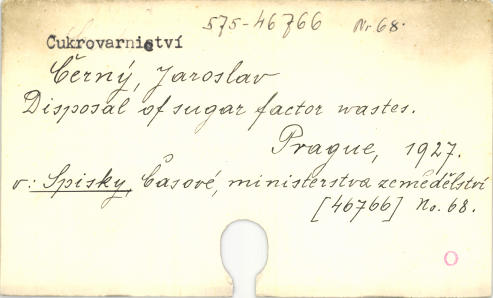 575-46766 Nr 68.
Cukrovarnictví
Černý, Jaroslav
Disposal of sugar factor wastes.
Prague, 1927.
v: Spisky, Časové, ministerstva zemědělství
[46766] No. 68.
O